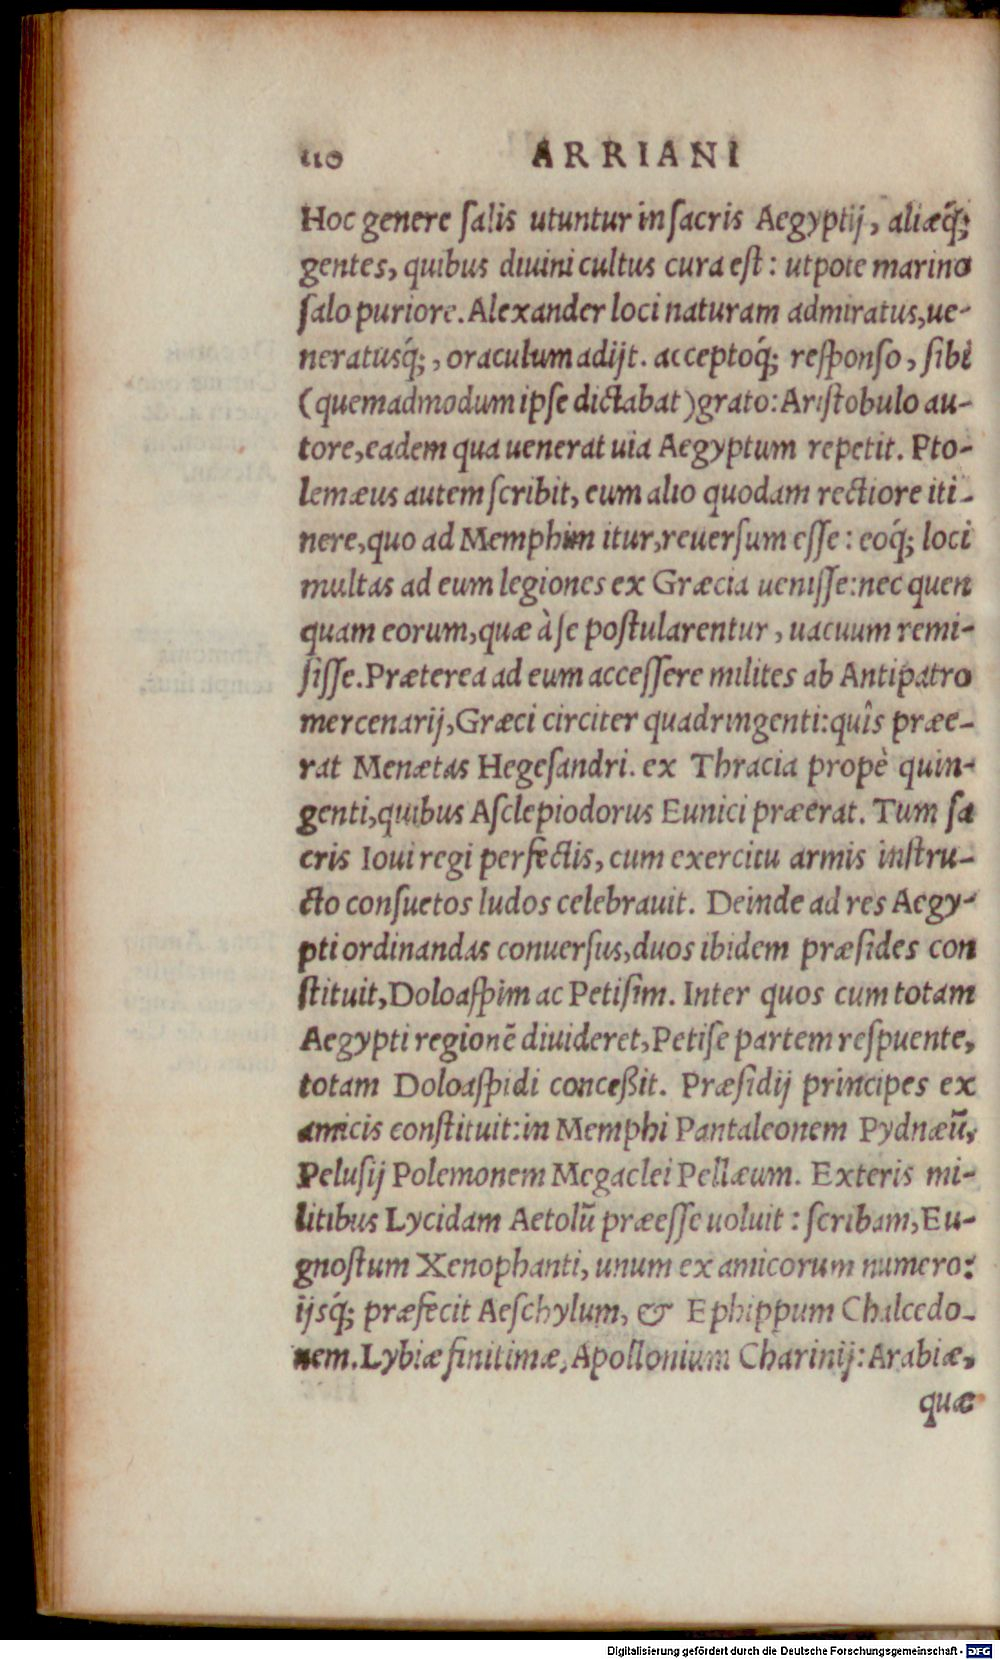 110 ARRIANI
Hoc genere ſalis utuntur in ſacris Aegyptij, aliæq́;
gentes, quibus diuini cultus cura eſt: utpote marino
ſalo puriore. Alexander loci naturam admiratus, ue-
neratusq́;, oraculum adijt. acceptoq́; reſponſo, ſibi
(quemadmodum ipſe dictabat) grato: Ariſtobulo au-
tore, eadem qua uenerat uia Aegyptum repetit. Pto-
lemæus autem ſcribit, eum alio quodam rectiore iti-
nere, quo ad Memphim itur, reuerſum eſſe: eoq́; loci
multas ad eum legiones ex Græcia ueniſſe: nec quen
quam eorum, quæ à ſe poſtularentur, uacuum remi-
ſiſſe. Præterea ad eum acceſſere milites ab Antipatro
mercenarij, Græci circiter quadringenti: quîs præe-
rat Menætas Hegeſandri. ex Thracia propè quin-
genti, quibus Aſclepiodorus Eunici præerat. Tum ſa
cris Ioui regi perfectis, cum exercitu armis inſtru-
cto conſuetos ludos celebrauit. Deinde ad res Aegy-
pti ordinandas conuerſus, duos ibidem præſides con
ſtituit, Doloaſpim ac Petiſim. Inter quos cum totam
Aegypti regionẽ diuideret, Petiſe partem reſpuente,
totam Doloaſpidi conceßit. Præſidij principes ex
amicis conſtituit: in Memphi Pantaleonem Pydnæũ,
Peluſij Polemonem Megaclei Pellæum. Exteris mi-
litibus Lycidam Aetolũ præeſſe uoluit: ſcribam, Eu-
gnoſtum Xenophanti, unum ex amicorum numero:
ijsq́; præfecit Aeſchylum, & Ephippum Chalcedo-
nem. Lybiæ finitimæ, Apollonium Charinij: Arabiæ,
quæ
Digitalisierung gefördert durch die Deutsche Forschungsgemeinschaft - DFG